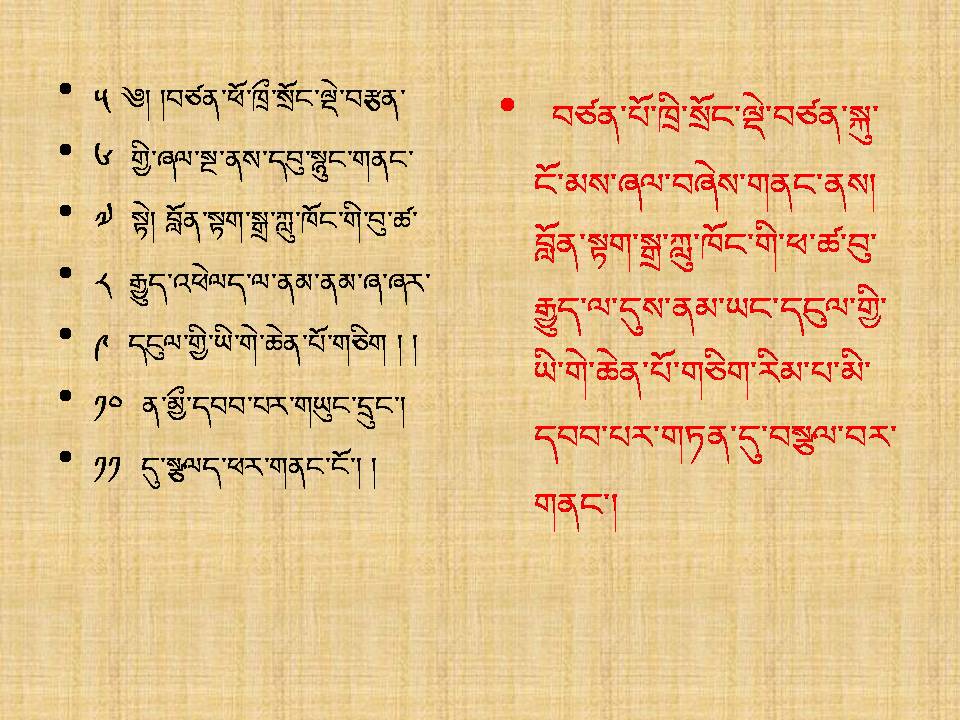 ༥ ༄། །བཙན་ཕོ་ཁྲྀ་སྲོང་ལྡེ་བརྩན་
༦ གྱི་ཞལ་སྔ་ནས་དབུ་སྙུང་གནང་
༧ སྟེ། བློན་སྟག་སྒྲ་ཀླུ་ཁོང་གི་བུ་ཚ་
༨ རྒྱུད་འཕེལད་ལ་ནམ་ནམ་ཞ་ཞར་
༩ དངུལ་གྱི་ཡི་གེ་ཆེན་པོ་གཅིག ། །
༡༠ ན་མྱྀ་དབབ་པར་གཡུང་དྲུང་།
༡༡ དུ་སྩལད་ཕར་གནང་ངོ་། །
བཙན་པོ་ཁྲི་སྲོང་ལྡེ་བཙན་སྐུ་
ངོ་མས་ཞལ་བཞེས་གནང་ནས།
བློན་སྟག་སྒྲ་ཀླུ་ཁོང་གི་ཕ་ཚ་བུ་
རྒྱུད་ལ་དུས་ནམ་ཡང་དངུལ་གྱི་
ཡི་གེ་ཆེན་པོ་གཅིག་རིམ་པ་མི་
དབབ་པར་གཏན་དུ་བསྩལ་བར་
གནང་།